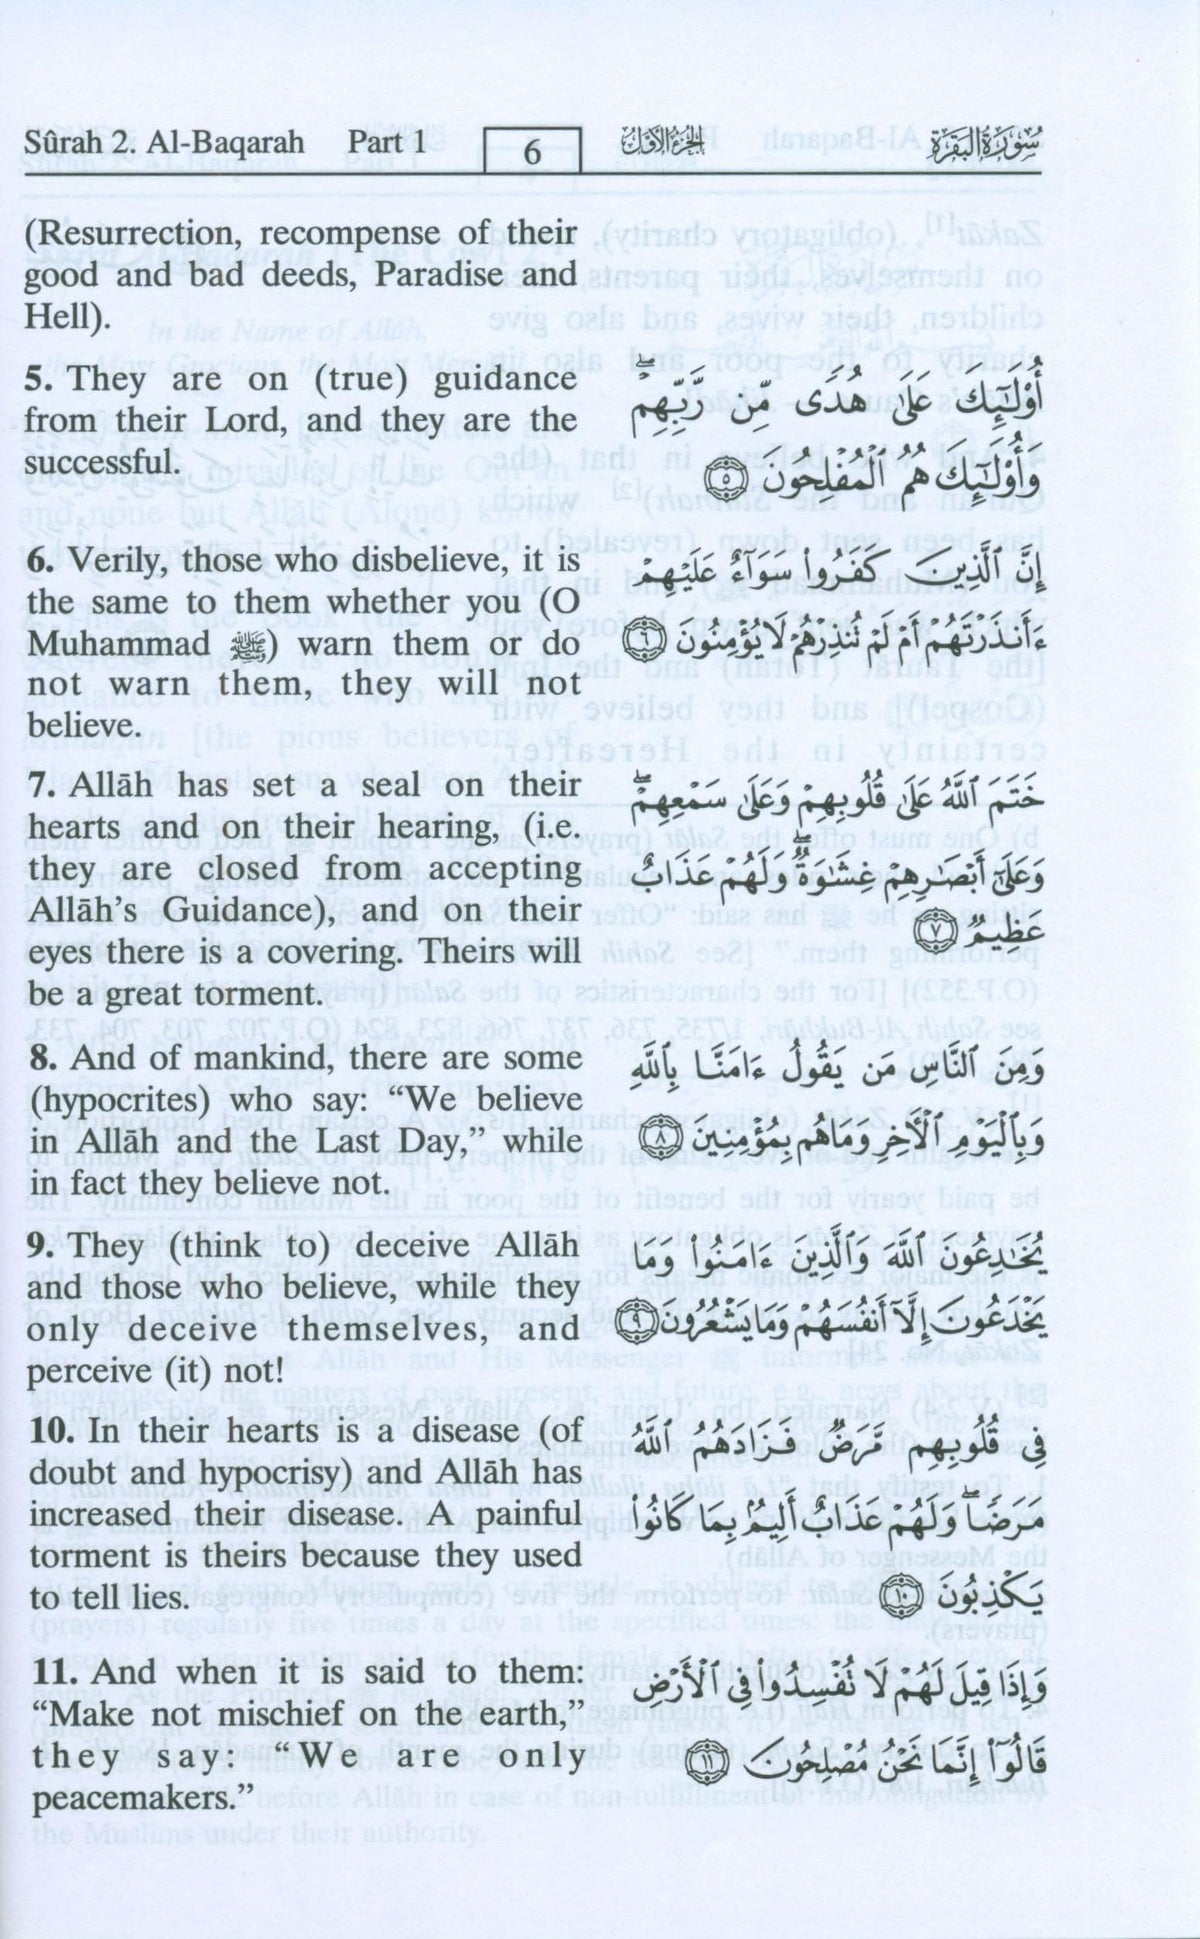 Sûrah 2. Al-Baqarah Part 1 6 الجزء الأول سورة البقرة
(Resurrection, recompense of their
good and bad deeds, Paradise and
Hell).
5. They are on (true) guidance
from their Lord, and they are the
successful.
أُوْلَـٰٓئِكَ عَلَىٰ هُدًى مِّن رَّبِّهِمْ ۖ
وَأُوْلَـٰٓئِكَ هُمُ ٱلْمُفْلِحُونَ ٥
6. Verily, those who disbelieve, it is
the same to them whether you (O
Muhammad ﷺ) warn them or do
not warn them, they will not
believe.
إِنَّ ٱلَّذِينَ كَفَرُوا۟ سَوَآءٌ عَلَيْهِمْ
ءَأَنذَرْتَهُمْ أَمْ لَمْ تُنذِرْهُمْ لَا يُؤْمِنُونَ ٦
7. Allâh has set a seal on their
hearts and on their hearing, (i.e.
they are closed from accepting
Allâh’s Guidance), and on their
eyes there is a covering. Theirs will
be a great torment.
خَتَمَ ٱللَّهُ عَلَىٰ قُلُوبِهِمْ وَعَلَىٰ سَمْعِهِمْ ۖ
وَعَلَىٰٓ أَبْصَـٰرِهِمْ غِشَـٰوَةٌ ۖ وَلَهُمْ عَذَابٌ
عَظِيمٌ ٧
8. And of mankind, there are some
(hypocrites) who say: “We believe
in Allâh and the Last Day,” while
in fact they believe not.
وَمِنَ ٱلنَّاسِ مَن يَقُولُ ءَامَنَّا بِٱللَّهِ
وَبِٱلْيَوْمِ ٱلْأٓخِرِ وَمَا هُم بِمُؤْمِنِينَ ٨
9. They (think to) deceive Allâh
and those who believe, while they
only deceive themselves, and
perceive (it) not!
يُخَـٰدِعُونَ ٱللَّهَ وَٱلَّذِينَ ءَامَنُوا۟ وَمَا
يَخْدَعُونَ إِلَّآ أَنفُسَهُمْ وَمَا يَشْعُرُونَ ٩
10. In their hearts is a disease (of
doubt and hypocrisy) and Allâh has
increased their disease. A painful
torment is theirs because they used
to tell lies.
فِى قُلُوبِهِم مَّرَضٌ فَزَادَهُمُ ٱللَّهُ
مَرَضًا ۖ وَلَهُمْ عَذَابٌ أَلِيمٌۢ بِمَا كَانُوا۟
يَكْذِبُونَ ١٠
11. And when it is said to them:
“Make not mischief on the earth,”
they say: “We are only
peacemakers.”
وَإِذَا قِيلَ لَهُمْ لَا تُفْسِدُوا۟ فِى ٱلْأَرْضِ
قَالُوٓا۟ إِنَّمَا نَحْنُ مُصْلِحُونَ ١١